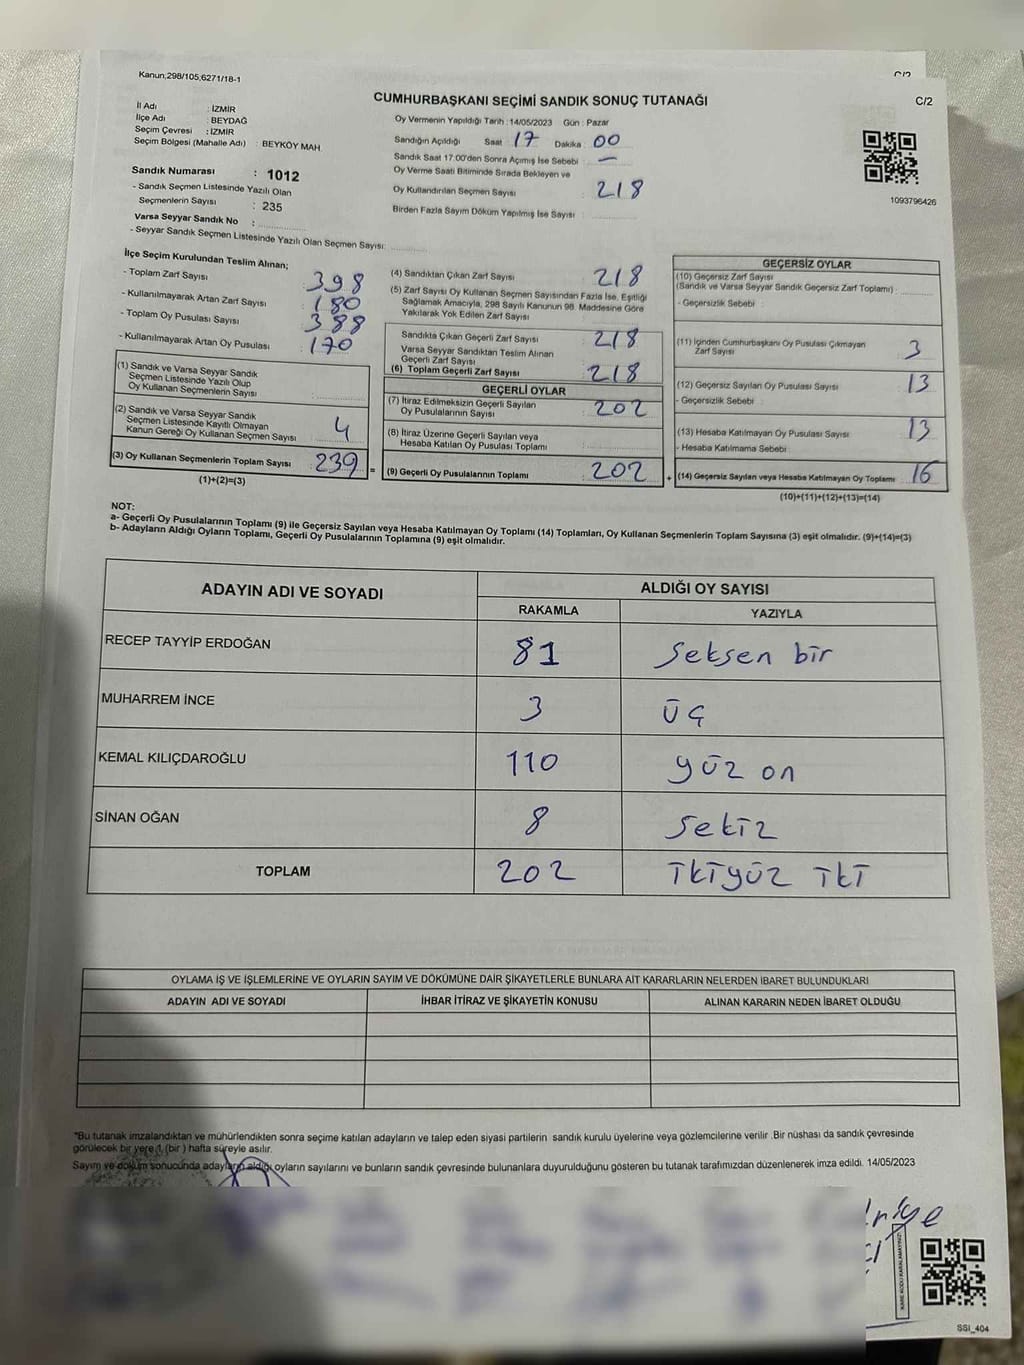 Kanun,298/105,6271/18-1
C/2
CUMHURBAŞKANI SEÇİMİ SANDIK SONUÇ TUTANAĞI
C/2
İl Adı : İZMİR
İlçe Adı : BEYDAĞ
Seçim Çevresi : İZMİR
Seçim Bölgesi (Mahalle Adı) : BEYKÖY MAH
Sandık Numarası : 1012
- Sandık Seçmen Listesinde Yazılı Olan
Seçmenlerin Sayısı : 235
Varsa Seyyar Sandık No :
- Seyyar Sandık Seçmen Listesinde Yazılı Olan Seçmen Sayısı:
Oy Vermenin Yapıldığı Tarih :14/05/2023 Gün : Pazar
Sandığın Açıldığı Saat 17 Dakika : 00
Sandık Saat 17.00'den Sonra Açımış İse Sebebi : —
Oy Verme Saati Bitiminde Sırada Bekleyen ve
Oy Kullandırılan Seçmen Sayısı : 218
Birden Fazla Sayım Döküm Yapılmış İse Sayısı :
1093796426
İlçe Seçim Kurulundan Teslim Alınan;
- Toplam Zarf Sayısı : 398
- Kullanılmayarak Artan Zarf Sayısı : 180
- Toplam Oy Pusulası Sayısı : 388
- Kullanılmayarak Artan Oy Pusulası : 170
(1) Sandık ve Varsa Seyyar Sandık
Seçmen Listesinde Yazılı Olup
Oy Kullanan Seçmenlerin Sayısı :
(2) Sandık ve Varsa Seyyar Sandık
Seçmen Listesinde Kayıtlı Olmayan
Kanun Gereği Oy Kullanan Seçmen Sayısı : 4
(3) Oy Kullanan Seçmenlerin Toplam Sayısı : 239 =
(1)+(2)=(3)
(4) Sandıktan Çıkan Zarf Sayısı : 218
(5) Zarf Sayısı Oy Kullanan Seçmen Sayısından Fazla İse, Eşitliği
Sağlamak Amacıyla, 298 Sayılı Kanunun 98. Maddesine Göre
Yakılarak Yok Edilen Zarf Sayısı :
Sandıkta Çıkan Geçerli Zarf Sayısı : 218
Varsa Seyyar Sandıktan Teslim Alınan
Geçerli Zarf Sayısı :
(6) Toplam Geçerli Zarf Sayısı : 218
GEÇERLİ OYLAR
(7) İtiraz Edilmeksizin Geçerli Sayılan
Oy Pusulalarının Sayısı : 202
(8) İtiraz Üzerine Geçerli Sayılan veya
Hesaba Katılan Oy Pusulası Toplamı :
(9) Geçerli Oy Pusulalarının Toplamı : 202 +
GEÇERSİZ OYLAR
(10) Geçersiz Zarf Sayısı
(Sandık ve Varsa Seyyar Sandık Geçersiz Zarf Toplamı) :
- Geçersizlik Sebebi :
(11) İçinden Cumhurbaşkanı Oy Pusulası Çıkmayan
Zarf Sayısı : 3
(12) Geçersiz Sayılan Oy Pusulası Sayısı : 13
- Geçersizlik Sebebi :
(13) Hesaba Katılmayan Oy Pusulası Sayısı : 13
- Hesaba Katılmama Sebebi :
(14) Geçersiz Sayılan veya Hesaba Katılmayan Oy Toplamı : 16
(10)+(11)+(12)+(13)=(14)
NOT:
a- Geçerli Oy Pusulalarının Toplamı (9) ile Geçersiz Sayılan veya Hesaba Katılmayan Oy Toplamı (14) Toplamları, Oy Kullanan Seçmenlerin Toplam Sayısına (3) eşit olmalıdır. (9)+(14)=(3)
b- Adayların Aldığı Oyların Toplamı, Geçerli Oy Pusulalarının Toplamına (9) eşit olmalıdır.
ADAYIN ADI VE SOYADI ALDIĞI OY SAYISI
RAKAMLA YAZIYLA
RECEP TAYYİP ERDOĞAN 81 Seksen bir
MUHARREM İNCE 3 üç
KEMAL KILIÇDAROĞLU 110 yüz on
SİNAN OĞAN 8 Sekiz
TOPLAM 202 ikiyüz iki
OYLAMA İŞ VE İŞLEMLERİNE VE OYLARIN SAYIM VE DÖKÜMÜNE DAİR ŞİKAYETLERLE BUNLARA AİT KARARLARIN NELERDEN İBARET BULUNDUKLARI
ADAYIN ADI VE SOYADI İHBAR İTİRAZ VE ŞİKAYETİN KONUSU ALINAN KARARIN NEDEN İBARET OLDUĞU
*Bu tutanak imzalandıktan ve mühürlendikten sonra seçime katılan adayların ve talep eden siyasi partilerin sandık kurulu üyelerine veya gözlemcilerine verilir .Bir nüshası da sandık çevresinde
görülecek bir yere 1 (bir ) hafta süreyle asılır.
Sayım ve döküm sonucunda adayların aldığı oyların sayılarını ve bunların sandık çevresinde bulunanlara duyurulduğunu gösteren bu tutanak tarafımızdan düzenlenerek imza edildi. 14/05/2023
KARE KODU KARALAMAYINIZ!
SSI_404